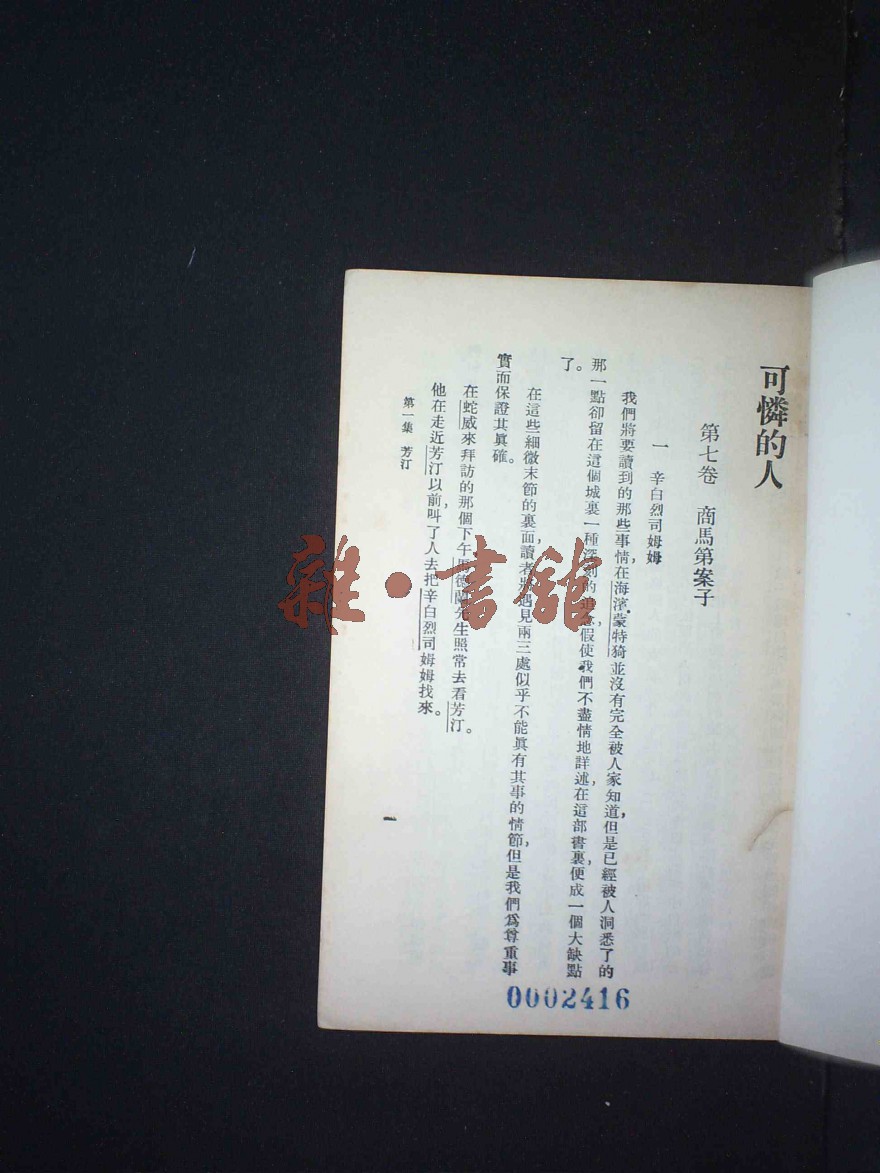 可憐的人
第七卷　商馬第案子
一　辛白烈司姆姆
我們將要讀到的那些事情，在海濱蒙特猗並沒有完全被人家知道，但是已經被人洞悉了的
那一點卻留在這個城裏一種深刻的追念，假使我們不盡情地詳述在這部書裏，便成一個大缺點
了。
在這些細微末節的裏面，讀者將遇見兩三處似乎不能眞有其事的情節，但是我們爲尊重事
實而保證其眞確。
在蛇威來拜訪的那個下午，馬德蘭先生照常去看芳汀。
他在走近芳汀以前，叫了人去把辛白烈司姆姆找來。
第一集　芳汀
一
0002416
雜·書館